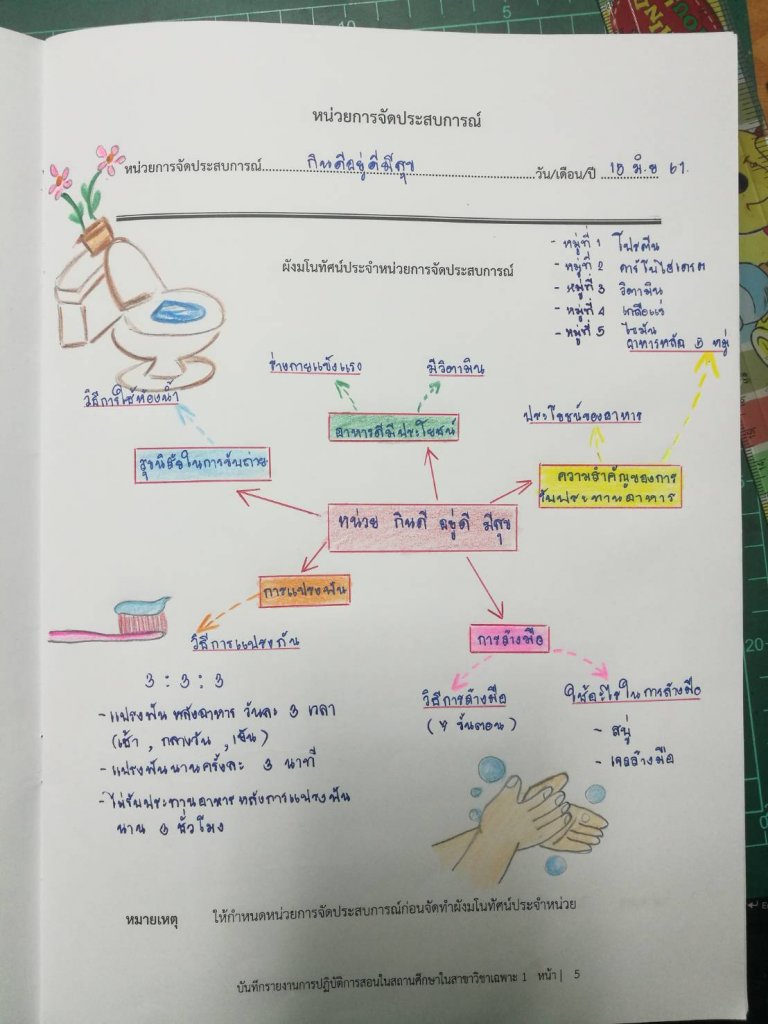 หน่วยการจัดประสบการณ์
หน่วยการจัดประสบการณ์ กินดีอยู่ดีมีสุข วัน/เดือน/ปี 15 มิ.ย 61.
ผังมโนทัศน์ประจำหน่วยการจัดประสบการณ์
- หมู่ที่ 1 โปรตีน
- หมู่ที่ 2 คาร์โบไฮเดรต
- หมู่ที่ 3 วิตามิน
- หมู่ที่ 4 เกลือแร่
- หมู่ที่ 5 ไขมัน
อาหารหลัก 5 หมู่
ร่างกายแข็งแรง
มีวิตามิน
วิธีการใช้ห้องน้ำ
ประโยชน์ของอาหาร
อาหารดีมีประโยชน์
สุขนิสัยในการขับถ่าย
ความสำคัญของการ
รับประทานอาหาร
หน่วย กินดี อยู่ดี มีสุข
การแปรงฟัน
การล้างมือ
วิธีการแปรงฟัน
3 : 3 : 3
- แปรงฟันหลังอาหาร วันละ 3 เวลา
(เช้า , กลางวัน , เย็น)
- แปรงฟันนานครั้งละ 3 นาที
- ไม่รับประทานอาหารหลังการแปรงฟัน
นาน 3 ชั่วโมง
วิธีการล้างมือ
(7 ขั้นตอน)
ใช้อะไรในการล้างมือ
- สบู่
- เจลล้างมือ
หมายเหตุ ให้กำหนดหน่วยการจัดประสบการณ์ก่อนจัดทำผังมโนทัศน์ประจำหน่วย
บันทึกรายงานการปฏิบัติการสอนในสถานศึกษาในสาขาวิชาเฉพาะ 1 หน้า | 5